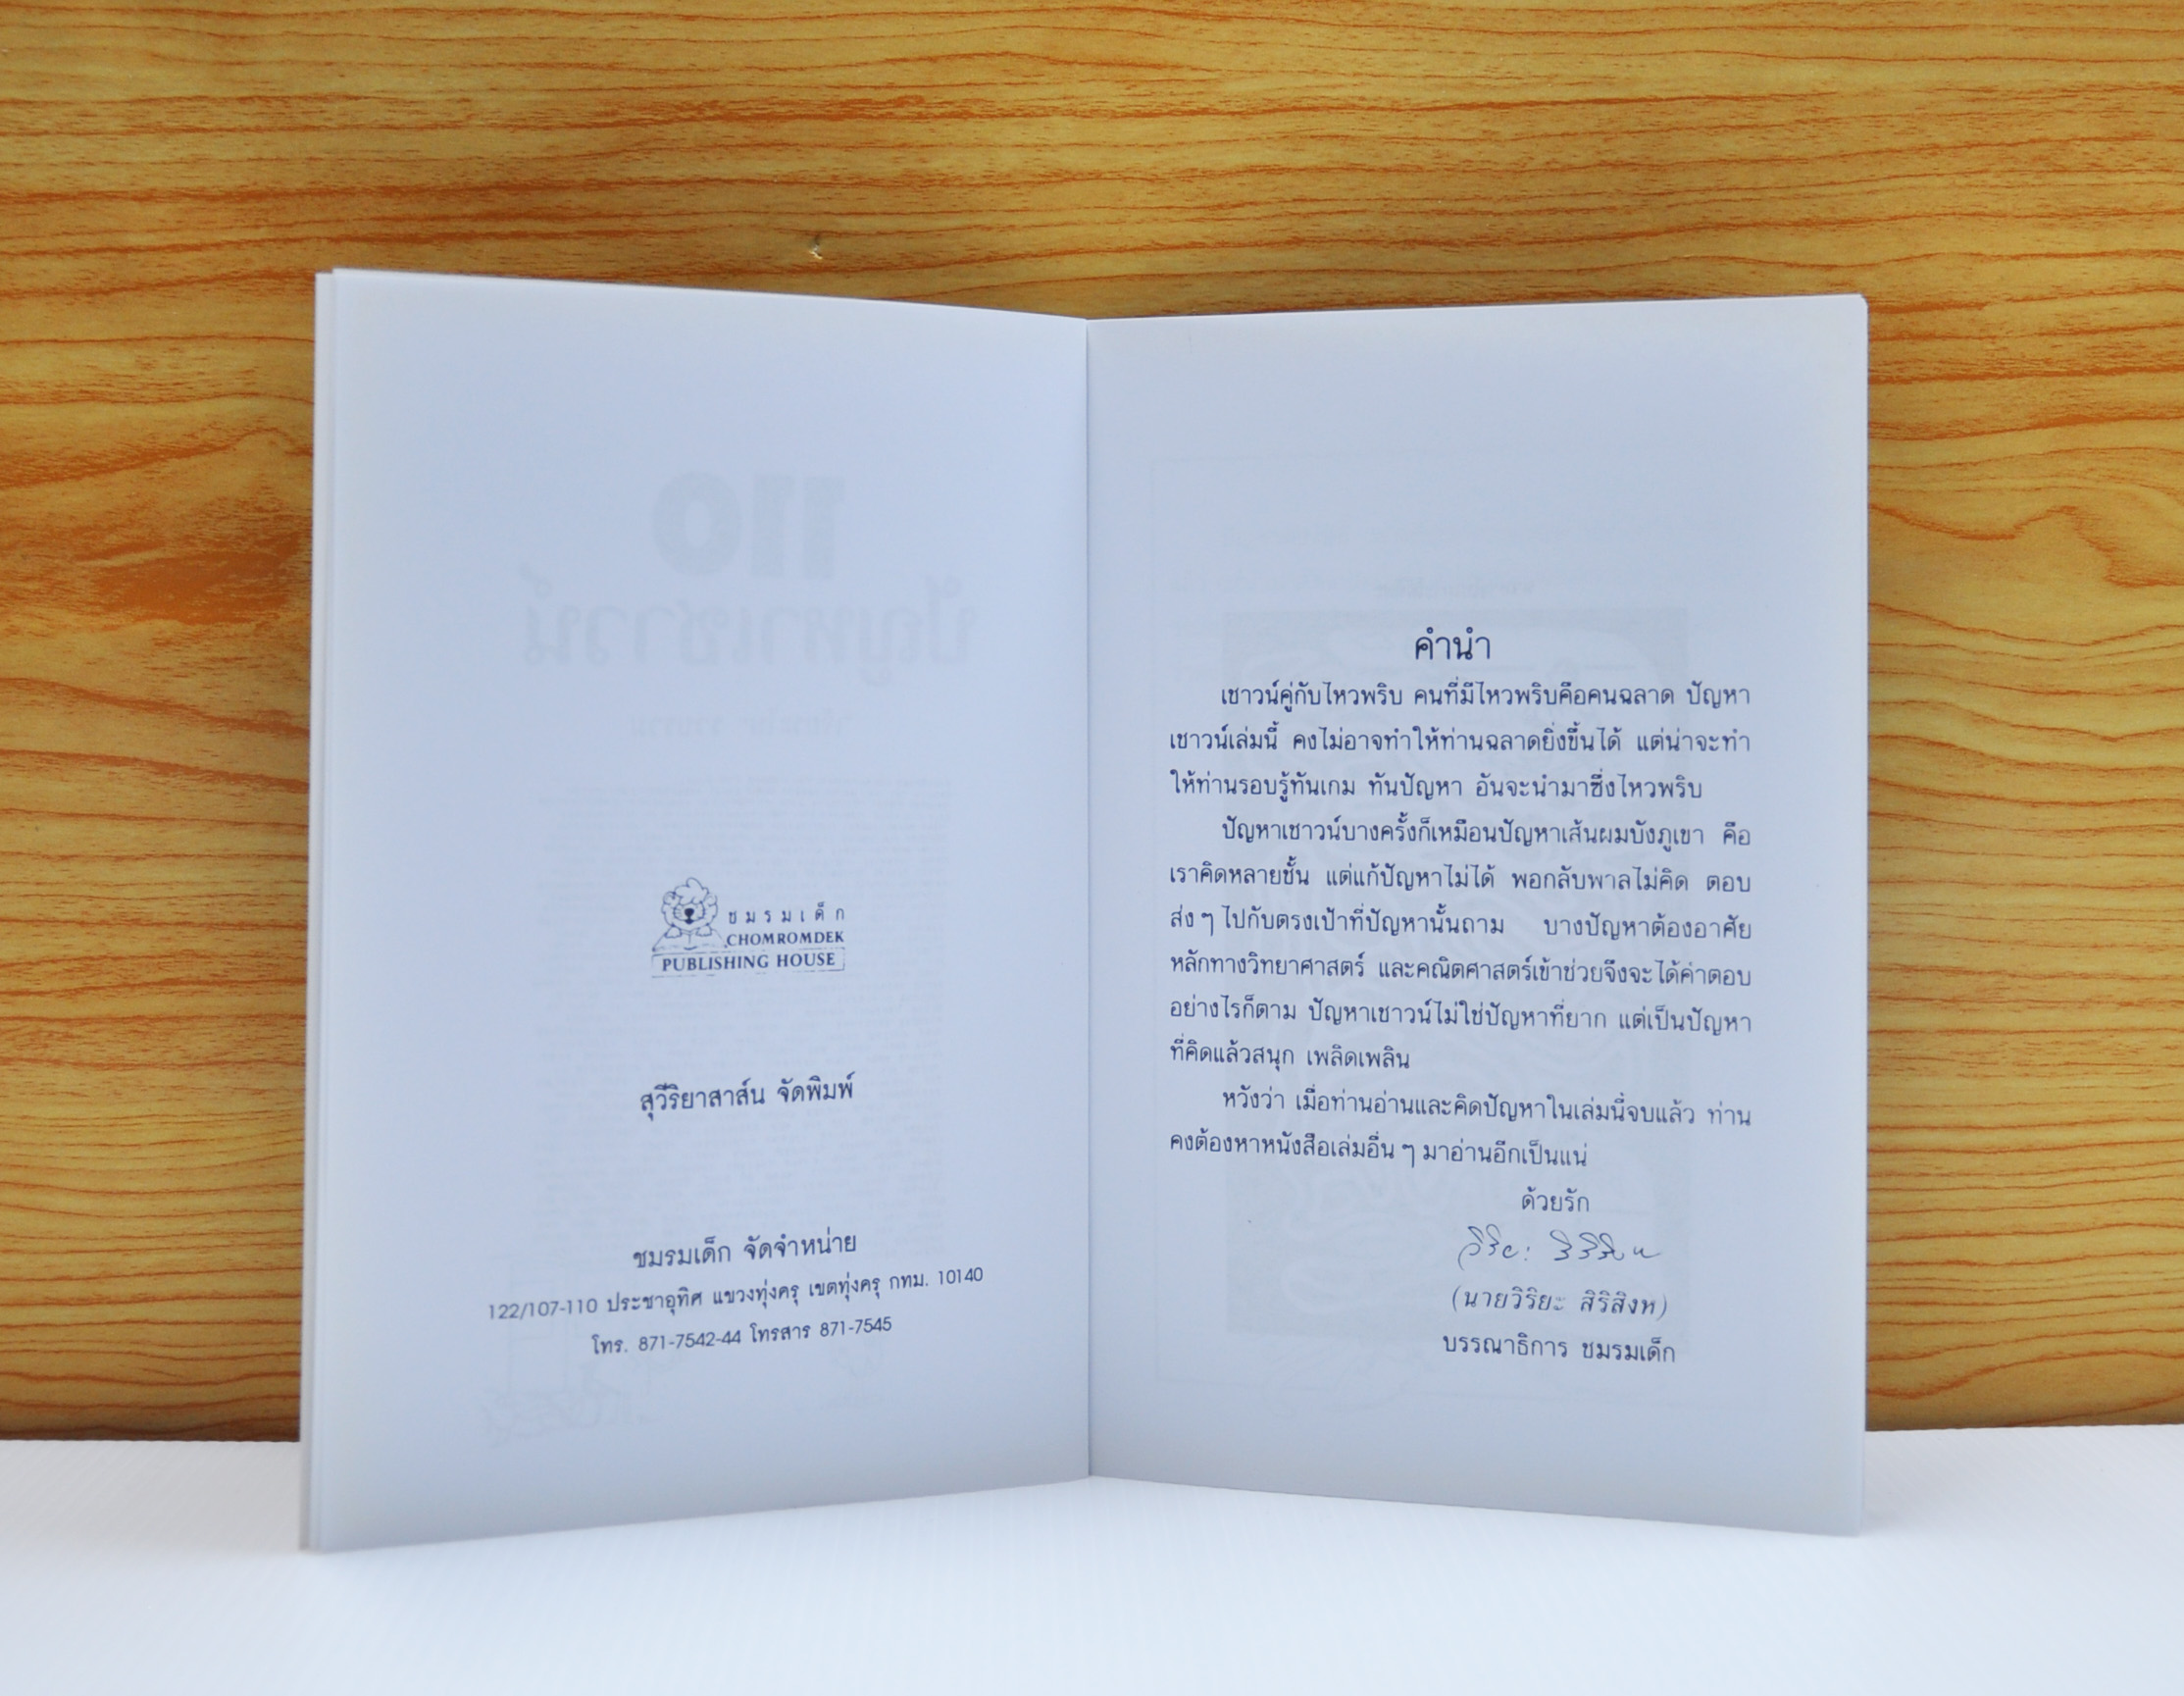 ชมรมเด็ก
CHOMROMDEK
PUBLISHING HOUSE
สุวีริยาสาส์น จัดพิมพ์
ชมรมเด็ก จัดจำหน่าย
122/107-110 ประชาอุทิศ แขวงทุ่งครุ เขตทุ่งครุ กทม. 10140
โทร. 871-7542-44 โทรสาร 871-7545
คำนำ
เชาวน์คู่กับไหวพริบ คนที่มีไหวพริบคือคนฉลาด ปัญหา
เชาวน์เล่มนี้ คงไม่อาจทำให้ท่านฉลาดยิ่งขึ้นได้ แต่น่าจะทำ
ให้ท่านรอบรู้ทันเกม ทันปัญหา อันจะนำมาซึ่งไหวพริบ
ปัญหาเชาวน์บางครั้งก็เหมือนปัญหาเส้นผมบังภูเขา คือ
เราคิดหลายชั้น แต่แก้ปัญหาไม่ได้ พอกลับพาลไม่คิด ตอบ
ส่งๆ ไปกับตรงเป้าที่ปัญหานั้นถาม บางปัญหาต้องอาศัย
หลักทางวิทยาศาสตร์ และคณิตศาสตร์เข้าช่วยจึงจะได้คำตอบ
อย่างไรก็ตาม ปัญหาเชาวน์ไม่ใช่ปัญหาที่ยาก แต่เป็นปัญหา
ที่คิดแล้วสนุก เพลิดเพลิน
หวังว่า เมื่อท่านอ่านและคิดปัญหาในเล่มนี้จบแล้ว ท่าน
คงต้องหาหนังสือเล่มอื่นๆ มาอ่านอีกเป็นแน่
ด้วยรัก
วิริยะ สิริสิงห
(นายวิริยะ สิริสิงห)
บรรณาธิการ ชมรมเด็ก